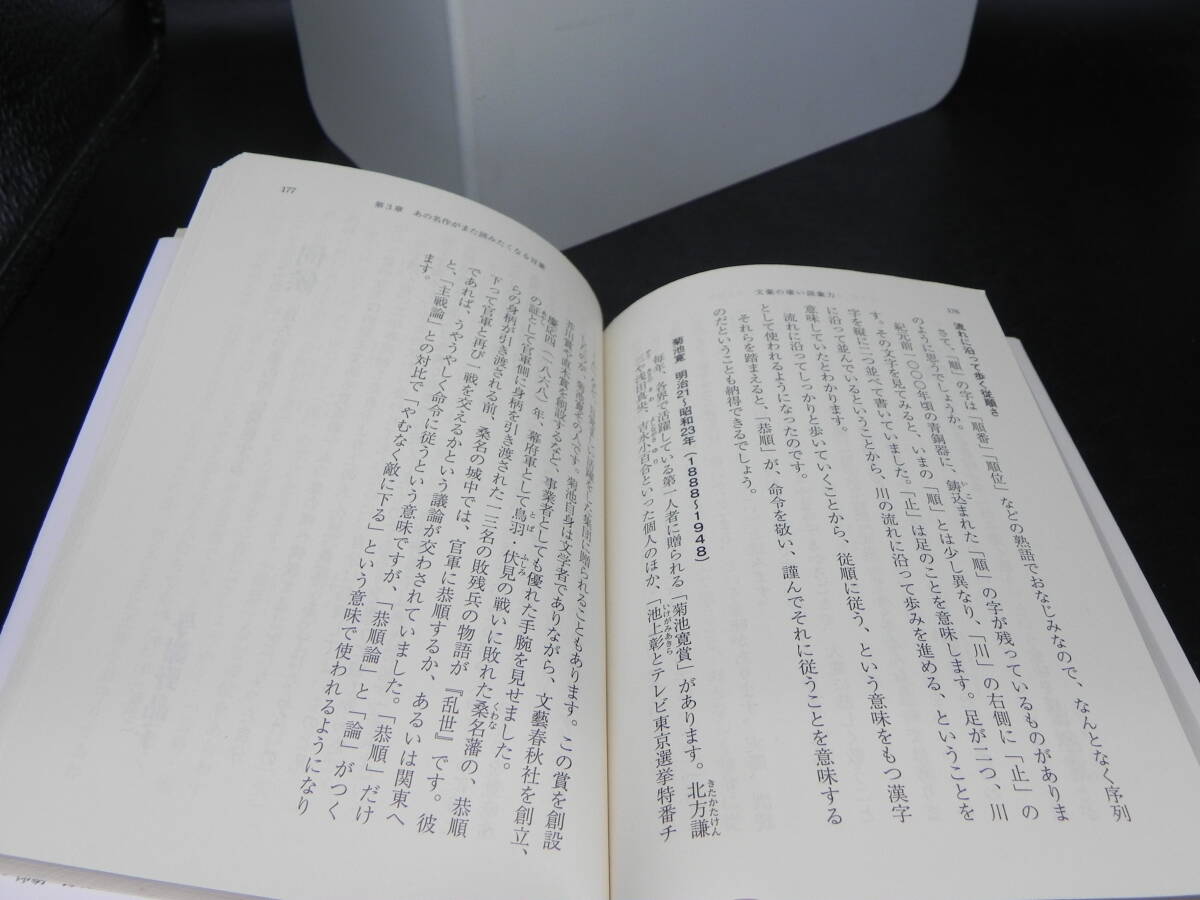 文豪の凄い語彙力
流れに沿って歩く従順さ
さて、「順」の字は「順番」「順位」などの熟語でおなじみなので、なんとなく序列
のように思うでしょうか。
紀元前一〇〇〇年頃の青銅器に、鋳込まれた「順」の字が残っているものがありま
す。その文字を見てみると、いまの「順」とは少し異なり、「川」の右側に「止」の
字を縦に二つ並べて書いていました。「止」は足のことを意味します。足が二つ、川
に沿って並んでいるということから、川の流れに沿って歩みを進める、ということを
意味していたとわかります。
流れに沿ってしっかりと歩いていくことから、従順に従う、という意味をもつ漢字
として使われるようになったのです。
それらを踏まえると、「恭順」が、命令を敬い、謹んでそれに従うことを意味する
のだということも納得できるでしょう。
菊池寛 明治21～昭和23年（1888～1948）
毎年、各界で活躍している第一人者に贈られる「菊池寛賞」があります。北方謙
三や浅田真央、吉永小百合といった個人のほか、「池上彰とテレビ東京選挙特番チ
177
第3章 あの名作がまた読みたくなる言葉
に贈られることもあります。この賞を創設
したのが、菊池寛その人です。菊池自身は文学者でありながら、文藝春秋社を創立、
芥川賞や直木賞を創設するなど、事業者としても優れた手腕を見せました。
慶応四（一八六八）年、幕府軍として鳥羽・伏見の戦いに敗れた桑名藩の、恭順
の証として官軍側に身柄を引き渡された一三名の敗残兵の物語が『乱世』です。彼
らの身柄が引き渡される前、桑名の城中では、官軍に恭順するか、あるいは関東へ
下って官軍と再び一戦を交えるかという議論が交わされていました。「恭順」だけ
であれば、うやうやしく命令に従うという意味ですが、「恭順論」と「論」がつく
と、「主戦論」との対比で「やむなく敵に下る」という意味で使われるようになり
ます。